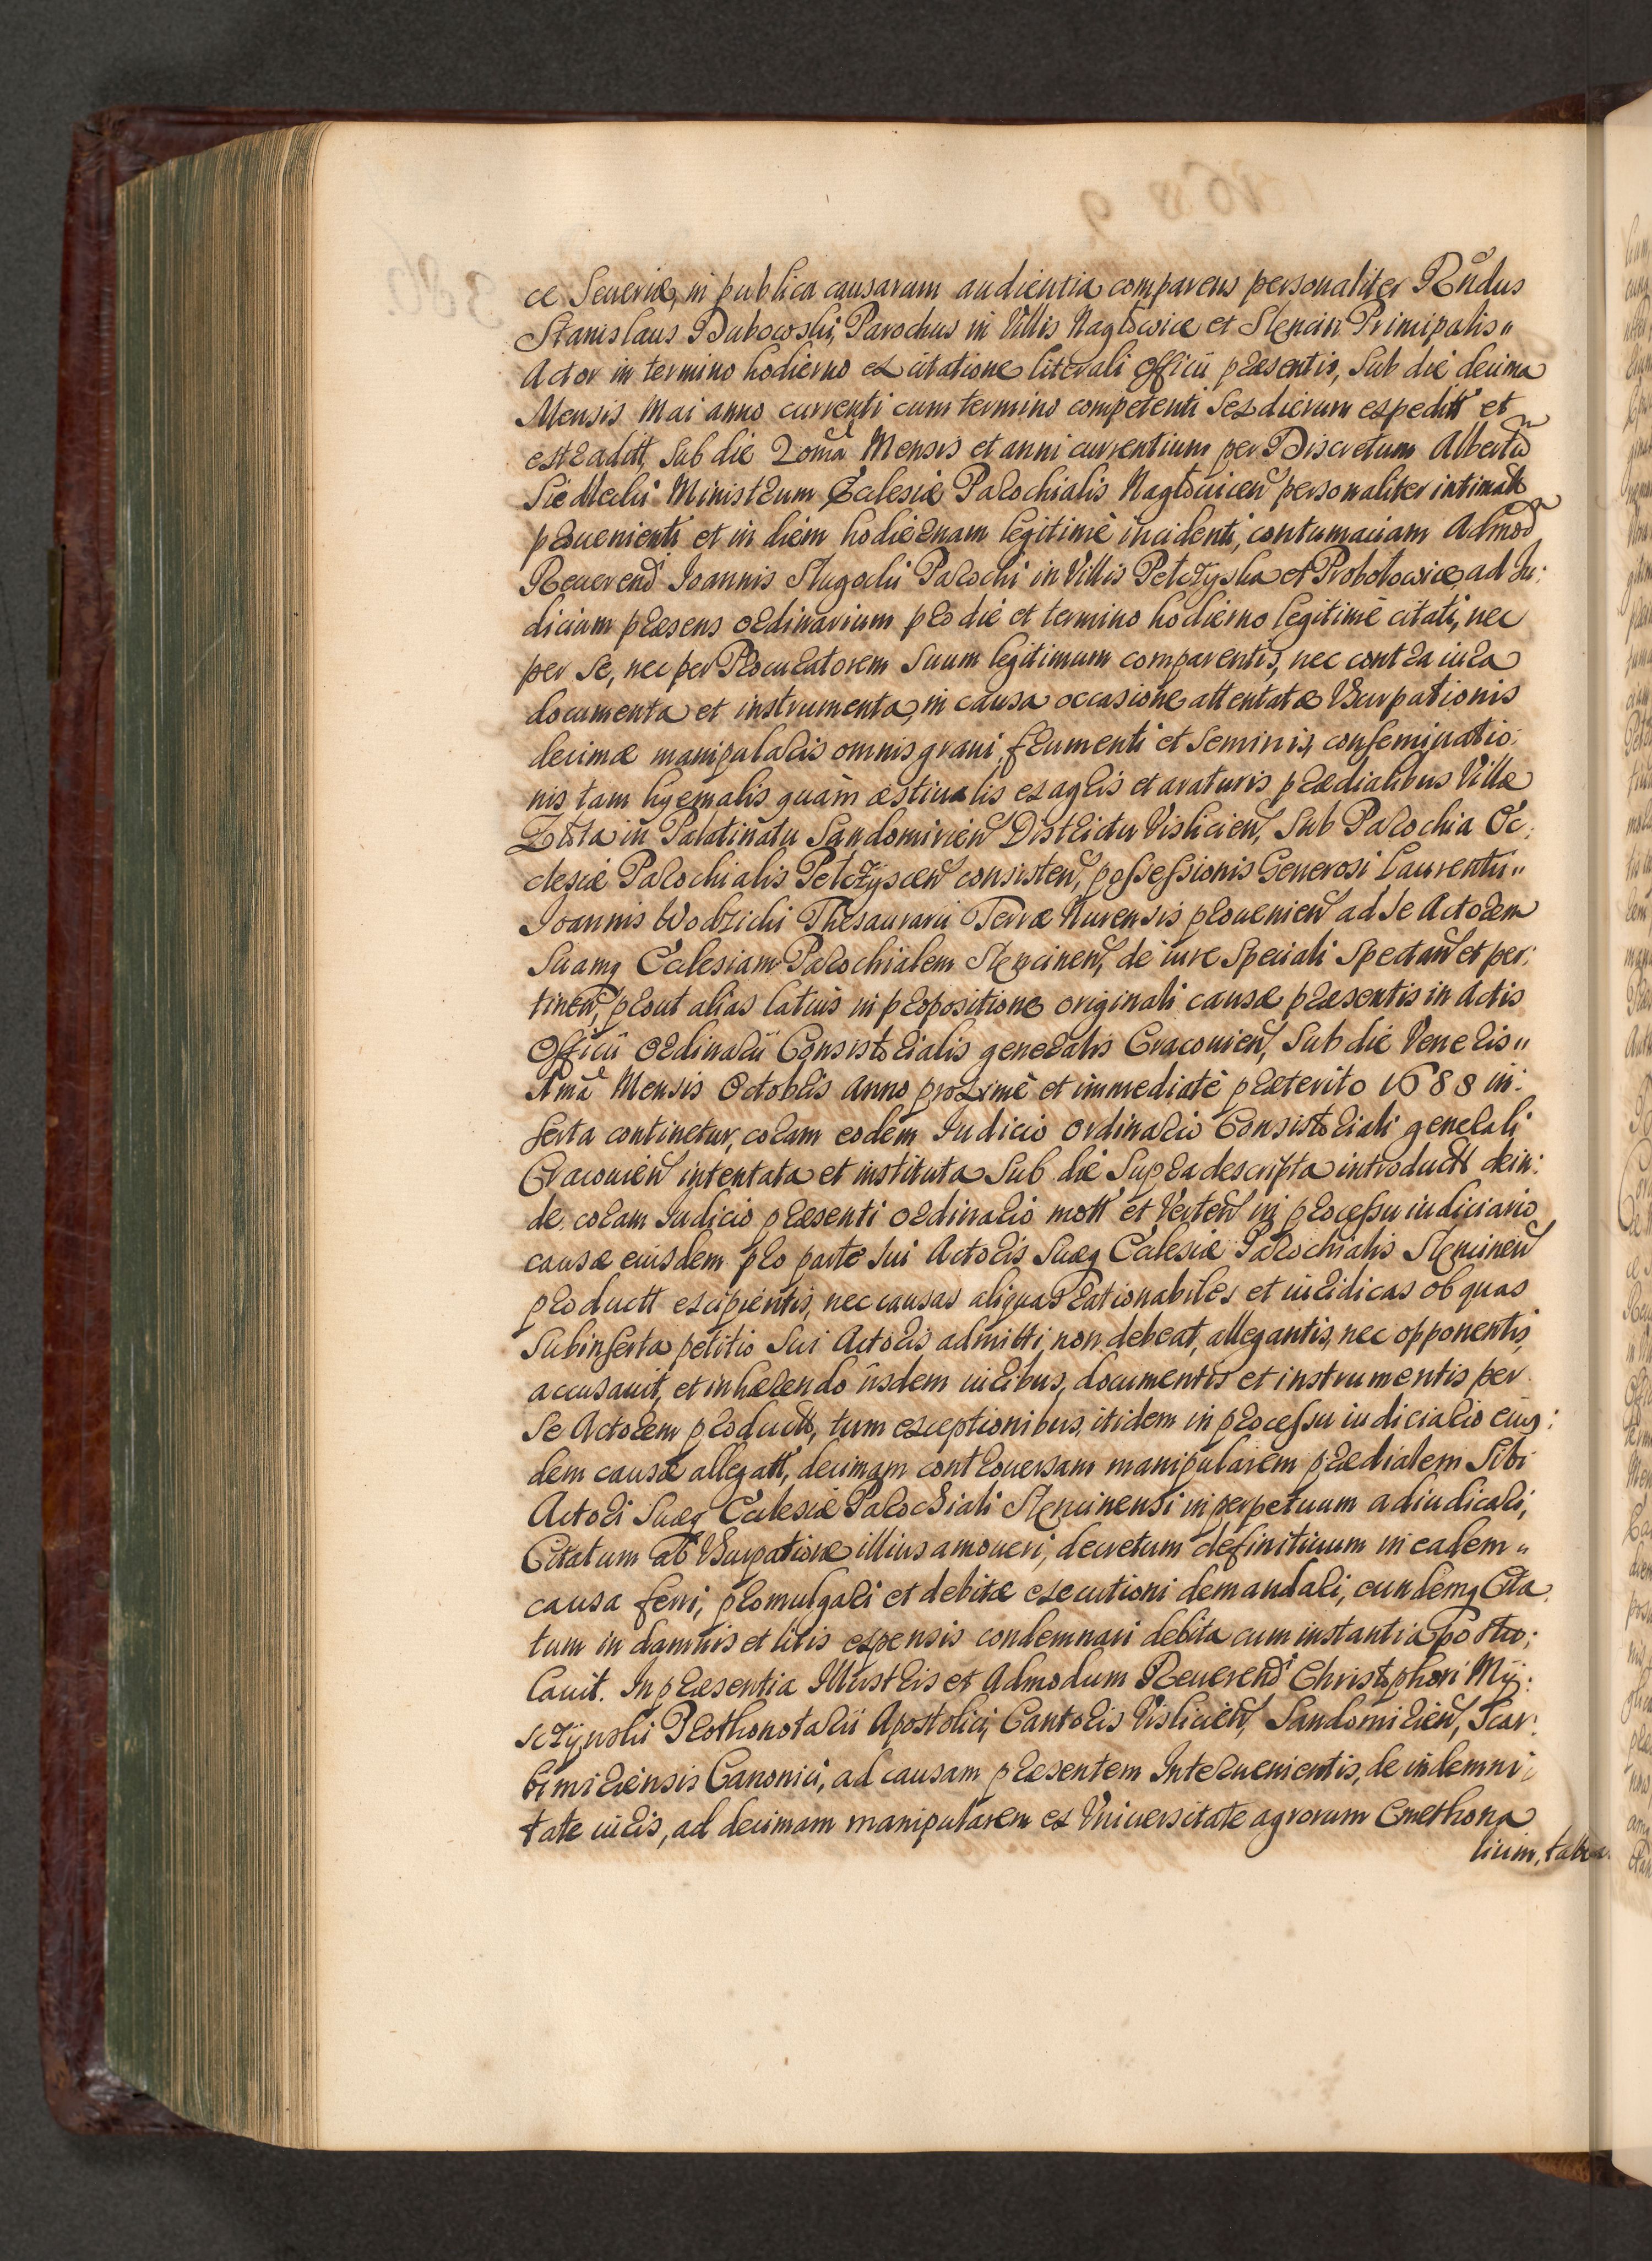 ce Seueriæ, in publica causarum audientia comparens personaliter Rñdus
Stanislaus Dubowski, Parochus in Villis Nagłowice et Slęcin Principalis„
Actor in termino hodierno ex citatione literali Officii præsentis, Sub die decima
Mensis Mai anno currenti cum termino competenti Sex dierum expeditt et
extradit, Sub die 20ma Mensis et anni currentium per Discretum Albertũ
Ministrum Ecclesiæ Parochialis Nagłouicen personaliter intimatt
prouenienti et in diem hodiernam legitimè incidenti, contumaciam Admod
Reuerend Ioannis Długocki Parochi in Villis Pełczyska et Probołowice, ad Iu:
dicium præsens ordinarium pro die et termino hodierno legitimè citati, nec
per Se, nec per Procuratorem Suum legitimum comparentis, nec contra iura
documenta et instrumenta, in causa occasione attentatæ Vsurpationis
decimæ manipularis omnis grani, frumenti et Seminis, conseminatio:
nis tam hyemalis quàm æstiualis ex agris et araturis prædialibus Villæ
Złota in Palatinatu Sandomirien Districtu Vislicien, Sub Parochia Ec:
clesiæ Parochialis Pełczyscen consisten, possessionis Generosi Laurentii„
Ioannis Wodzicki Thesaurarii Terræ Nurensis prouenien ad Se Actorem
Suamq Ecclesiam Parochialem Slęcinen, de iure Speciali Spectan et per:
tinen, prout alias latius in propositione originali causæ præsentis in Actis
Officii Ordinarii Consistorialis generalis Cracouien, Sub die Veneris„
1mã Mensis Octobris Anno proximè et immediatè præterito 1688 in:
serta continetur, coram eodem Iudicio Ordinario Consistoriali generali
Cracouien intentata et instituta Sub die Supra descripta introductt dein:
de coram Iudicio præsenti Ordinario mott et Verten in processu iudiciario
causæ eiusdem pro parte Sui Actoris Suæq Ecclesiæ Parochialis Slęcinen
productt excipientis, nec causas aliquas rationabiles et iuridicas ob quas
Subinserta petitio Sui Actoris admitti non debeat, allegantis, nec opponentis,
accusauit, et inhærendo iisdem iuribus, documentis et instrumentis per
Se Actorem productt, tum exceptionibus, itidem in processu iudiciario eius:
dem causæ allegatt, decimam controuersam manipularem prædialem Sibi
Actori Suæq Ecclesiæ Parochiali Slęcinensi in perpetuum adiudicari,
Citatum ab Vsurpatione illius amoueri, decretum definitiuum in eadem„
causa ferri, promulgari et debitæ executioni demandari, eundemq Cita
tum in damnis et litis expensis condemnari debita cum instantia postu:
lauit. In præsentia Illustris et Admodum Reuerend Christophori Mij:
sczynski Prothonotarii Apostolici, Cantoris Vislicien, Sandomirien, Scar:
bimiriensis Canonici, ad causam præsentem Interuenientis, de indemni:
tate iuris, ad decimam manipularem ex Vniuersitate agrorum Cmethona
lium, taber